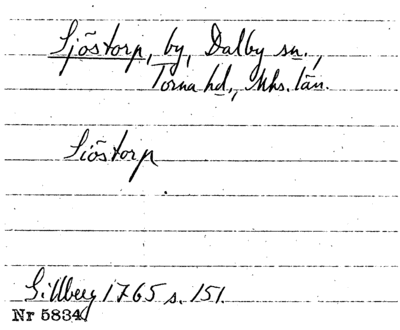 Sjöstorp, by, Dalby sn.,
Torna hd., Mhs. län.
Siöstorp
Gillberg 1765 s. 151.
Nr 5834